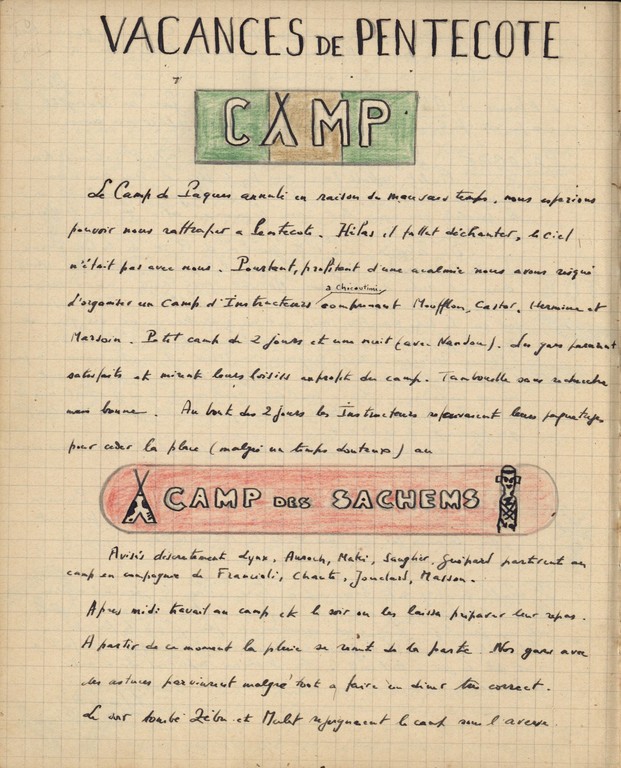 VACANCES DE PENTECOTE
CAMP
Le Camp de Paques annulé en raison du mauvais temps, nous esperions
pouvoir nous rattraper a Pentecote. Hélas il fallut déchanter, le ciel
n'était pas avec nous. Pourtant, profitant d'une acalmie nous avons risqué
a Chicoutimi
d'organiser un Camp d'Instructeurs comprenant Moufflon, Castor, Hermine et
Marsoin. Petit camp de 2 jours et une nuit (avec Nandou). Les gars parurent
satisfaits et mirent leurs loisirs a profit du camp. Tambouille sans recherche
mais bonne. Au bout des 2 jours les Instructeurs
pour ceder la place (malgré un temps douteux) au
CAMP DES SACHEMS
Avisés discretement Lynx, Auroch, Maki, Sanglier, Guépard partirent au
camp en compagnie de Francioli, Chante, Jouclard, Masson.
Apres midi travail au camp et le soir on les laissa préparer leur repas.
A partir de ce moment la pluie se remit de la partie. Nos gars avec
des astuces parvinrent malgré tout a faire un diner très correct.
Le soir tombé Zébu et Mulot rejoignaient le camp sous l'averse.